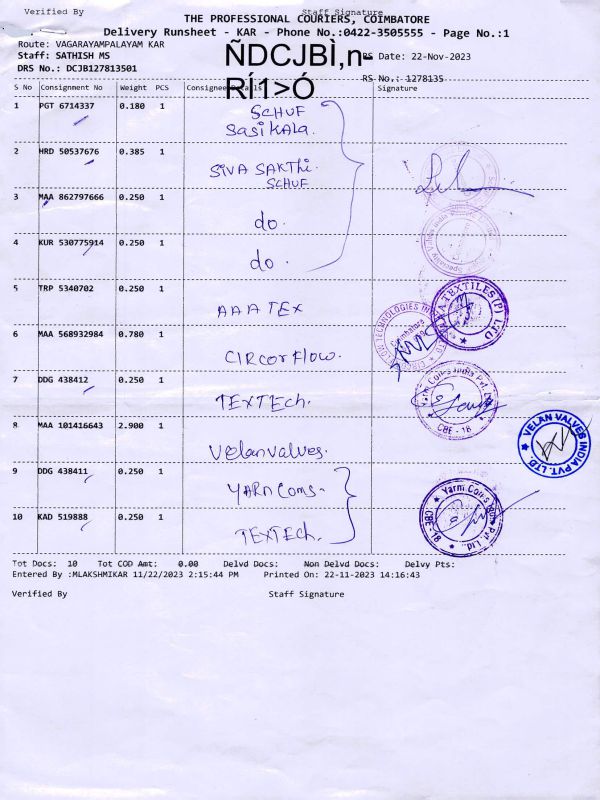 Verified By Staff Signature
THE PROFESSIONAL COURIERS, COIMBATORE
Delivery Runsheet - KAR - Phone No.:0422-3505555 - Page No.:1
Route: VAGARAYAMPALAYAM KAR
Staff: SATHISH MS RS Date: 22-Nov-2023
DRS No.: DCJB127813501
ÑDCJBÌ,n-
RÍ1>Ó
RS No.: 1278135
S No Consignment No Weight PCS Consignee Details Signature
1 PGT 6714337 0.180 1 SCHUF
Sasikala.
2 HRD 50537676 0.385 1
SIVA SAKThi.
SCHUF
3 MAA 862797666 0.250 1
do.
4 KUR 530775914 0.250 1
do.
5 TRP 5340702 0.250 1
AAA TEX
TEXTILES(P) LTD
6 MAA 568932984 0.780 1
CIRCOR FLOW.
7 DDG 438412 0.250 1
TEXTECh.
Yarn Coms India Pvt. Ltd.
CBE - 18
8 MAA 101416643 2.900 1
Velanvalves.
VELAN VALVES INDIA PVT. LTD.
9 DDG 438411 0.250 1
YARN Coms.
10 KAD 519888 0.250 1
TEXTECh.
Yarn Coms India Pvt. Ltd.
CBE-18
Tot Docs: 10 Tot COD Amt: 0.00 Delvd Docs: Non Delvd Docs: Delvy Pts:
Entered By :MLAKSHMIKAR 11/22/2023 2:15:44 PM Printed On: 22-11-2023 14:16:43
Verified By Staff Signature